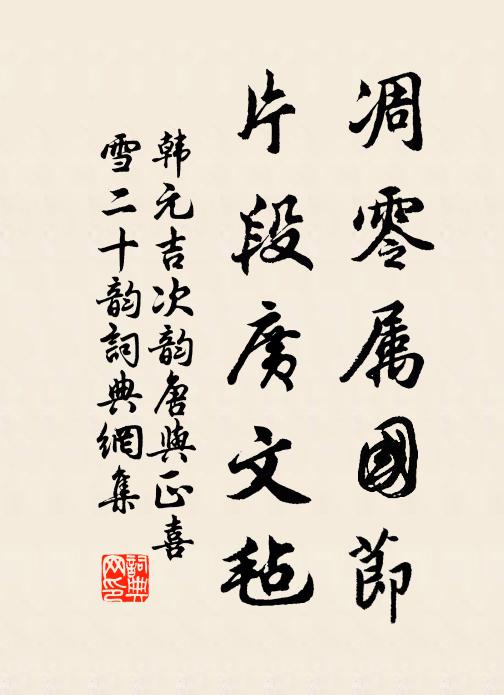 凋零属國節
片段广文毡
韩元吉次韵唐與正喜
雪二十韵詞典網集
詞典
网印